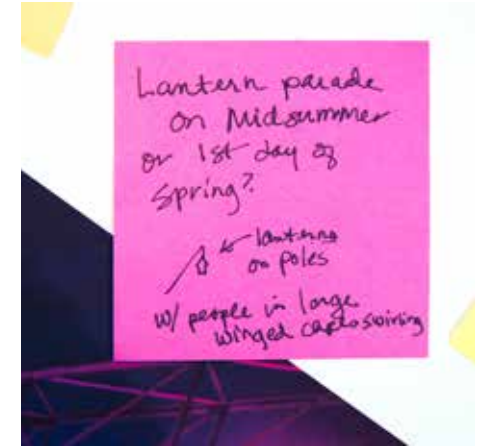 Lantern parade
on Midsummer
or 1st day of
Spring?
lanterns
on poles
w/ people in large
winged capes